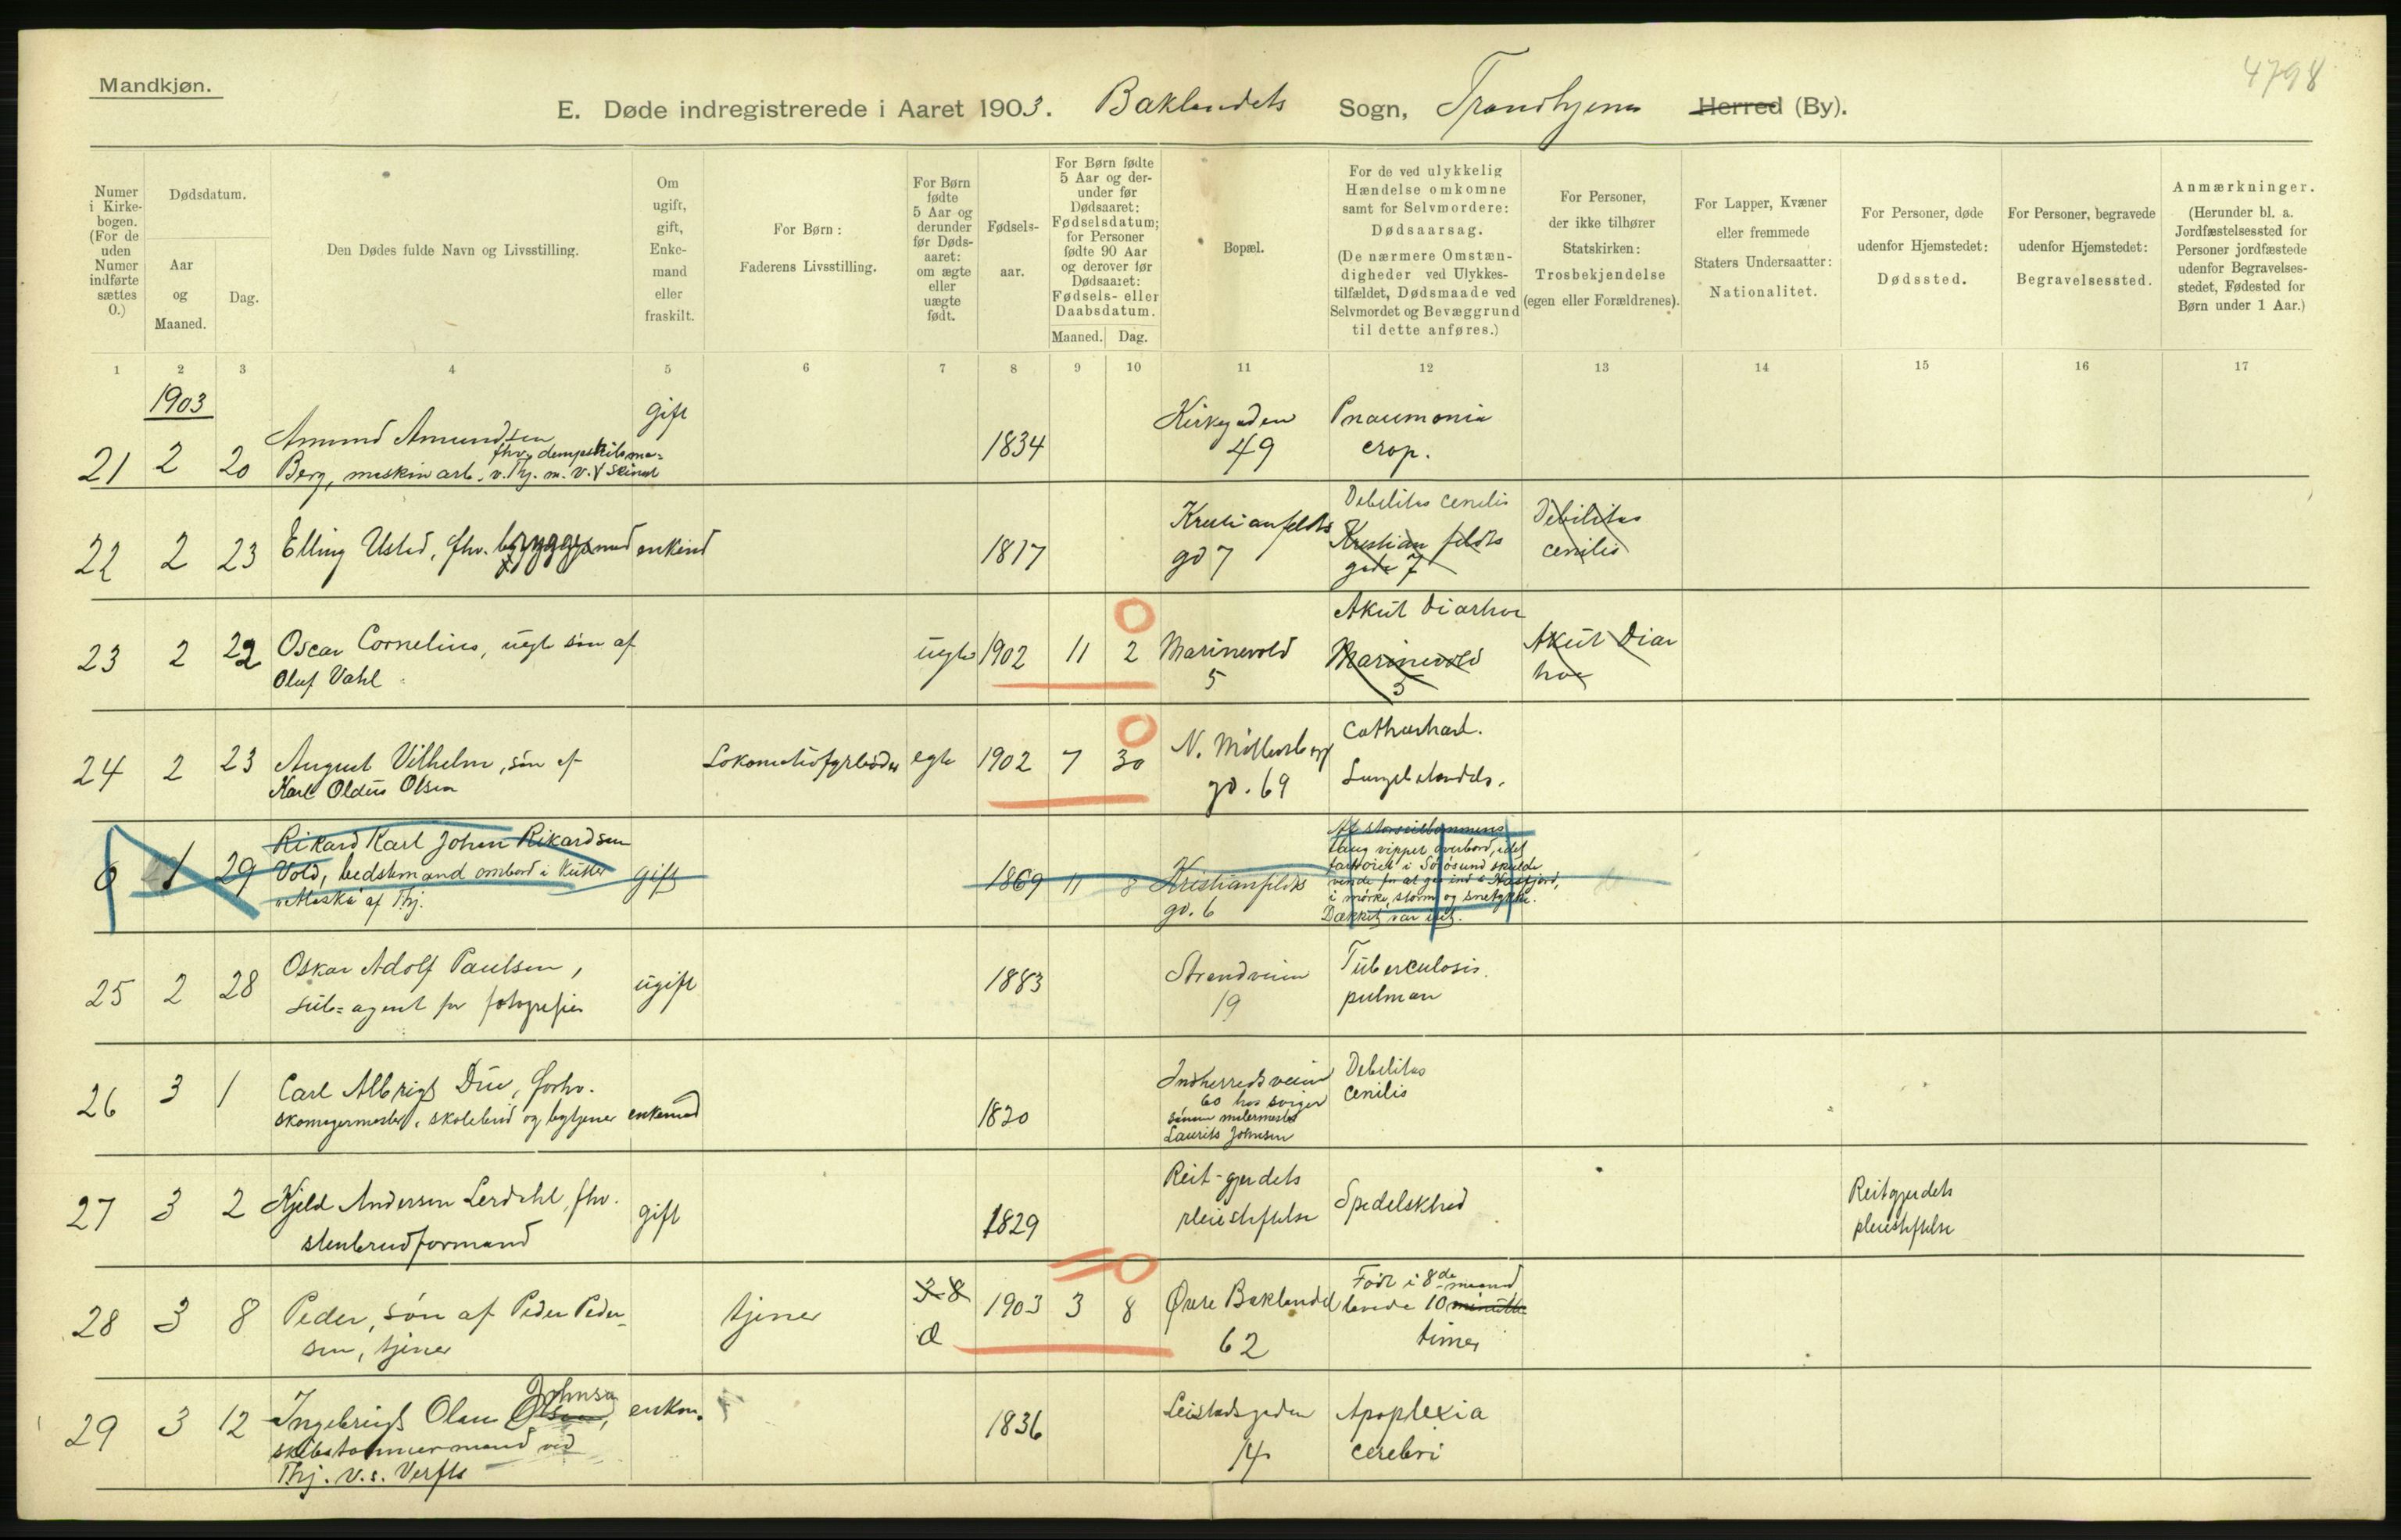 4798
Mandkjøn.
E. Døde indregistrerede i Aaret 1903. Baklandets Sogn, Trondhjems Herred (By).
Numer
i Kirke-
bogen.
(For de
uden
Numer
indførte
sættes
0.)
Dødsdatum.
Aar
og
Maaned.
Dag.
Den Dødes fulde Navn og Livsstilling.
Om
ugift,
gift,
Enke-
mand
eller
fraskilt.
For Børn:
Faderens Livsstilling.
For Børn
fødte
5 Aar og
derunder
før Døds-
aaret:
om ægte
eller
uægte
født.
Fødsels-
aar.
For Børn fødte
5 Aar og der-
under før
Dødsaaret:
Fødselsdatum;
for Personer
fødte 90 Aar
og derover før
Dødsaaret:
Fødsels- eller
Daabsdatum.
Maaned. Dag.
Bopæl.
For de ved ulykkelig
Hændelse omkomne
samt for Selvmordere:
Dødsaarsag.
(De nærmere Omstæn-
digheder ved Ulykkes-
tilfældet, Dødsmaade ved
Selvmordet og Bevæggrund
til dette anføres.)
For Personer,
der ikke tilhører
Statskirken:
Trosbekjendelse
(egen eller Forældrenes).
For Lapper, Kvæner
eller fremmede
Staters Undersaatter:
Nationalitet.
For Personer, døde
udenfor Hjemstedet:
Dødssted.
For Personer, begravede
udenfor Hjemstedet:
Begravelsessted.
Anmærkninger.
(Herunder bl. a.
Jordfæstelsessted for
Personer jordfæstede
udenfor Begravelses-
stedet, Fødested for
Børn under 1 Aar.)
1 2 3 4 5 6 7 8 9 10 11 12 13 14 15 16 17
1903
21 2 20
Amund Amundsen
Berg, maskinarb. v. Thj. m. v.
gift
1834
Kirkegaden
49
Pnaumonia
crop.
22 2 23
Elling Usted, fhv. bryggemand
enkemd
1817
Kristianfeldts
gd 7
Debilitas cenilis
Kristian feldts
gade 7
Debilitas
cenilis
23 2 22
Oscar Cornelius, uegt søn af
Oluf Vahl
uegte 1902 11 2
Marinevold
5
Akut Diarhoe
Marinevold
5
Akut Diar
hoe
24 2 23
August Vilhelm, søn af
Karl Oldus Olsen
Lokomotivfyrbøder
egte 1902 7 30
N. Møllenberg
gd. 69
Catharhard.
Lungebetændels.
0 1 29
Rikard Karl Johan Rikardsen
Vold, bedstmand ombord i Kutter
"Alaska" af Thj.
gift
1869 11 8
Kristianfeldts
gd. 6
Af storseilbommens
taug vippet overbord, idet
fartøiet i Sørøsund skulde
vende for at gaa ind i Hasfjord,
i mørke, storm og snetykke.
Dækket var iset.
25 2 28
Oskar Adolf Paulsen,
sub-agent for fotografier
ugift
1883
Strandveien
19
Tuberculosis.
pulmon
26 3 1
Carl Albrigt Due, forhv.
skomagermester, skolebud og bytjener
enkemd
1820
Indherredsveien
60 hos sviger
sønnen malermester
Laurits Johnsen
Debilitas
cenilis
27 3 2
Kjeld Andersen Lerdahl, fhv.
stenbrudformand
gift
1829
Reit-gjerdets
pleiestiftelse
Spedelskhed
Reitgjerdets
pleiestiftelse
28 3 8
Peder, søn af Peder Peder-
sen, tjener
tjener
3 8
1903 3 8
Øvre Baklandet
62
Født i 8de maaned
levede 10 minutter
timer
29 3 12
Ingebrigt Olaus Olsen, Johnsen
skibstømmermand ved
Thj. v.s. Verfts
enkem.
1836
Leistadsgaden
14
Apoplexia
cerebri